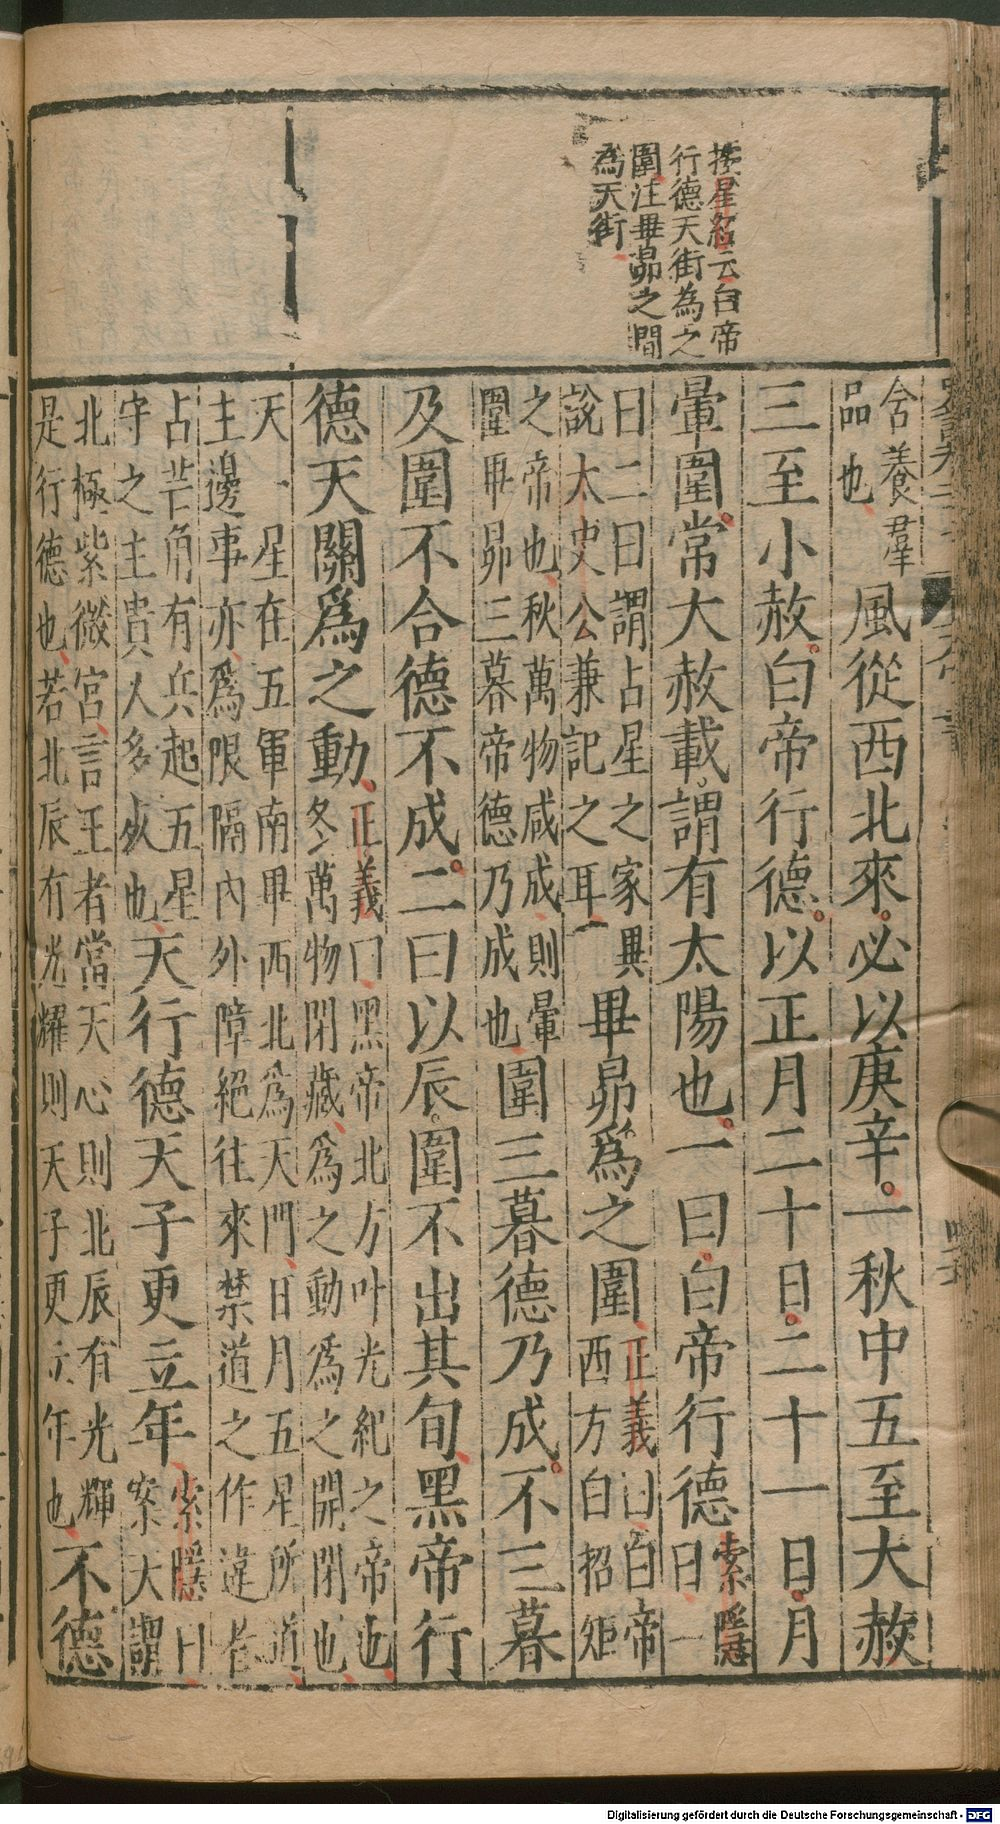 按星紀云白帝
行德天街為之
圍注畢昴之間
為天街
含養羣
品也
風從西北來必以庚辛一秋中五至大赦
三至小赦白帝行德以正月二十日二十一日月
暈圍常大赦載謂有太陽也一曰白帝行德
索隱
曰一
曰二曰謂占星之家異
說太史公兼記之耳
畢昴爲之圍
正義曰白帝
西方白招矩
之帝也秋萬物咸成則暈
圍畢昴三暮帝德乃成也
圍三暮德乃成不三暮
及圍不合德不成二曰以辰圍不出其旬黑帝行
德天關爲之動
正義曰黑帝北方叶光紀之帝也
冬萬物閉藏爲之動爲之開閉也
天一星在五軍南畢西北爲天門日月五星所道
主邊事亦爲限隔內外障絕往來禁道之作違者
占芒角有兵起五星
守之主貴人多死也
天行德天子更立年
索隱曰
案大謂
北極紫微宮言王者當天心則北辰有光輝
是行德也若北辰有光耀則天子更立年也
不德
Digitalisierung gefördert durch die Deutsche Forschungsgemeinschaft - DFG